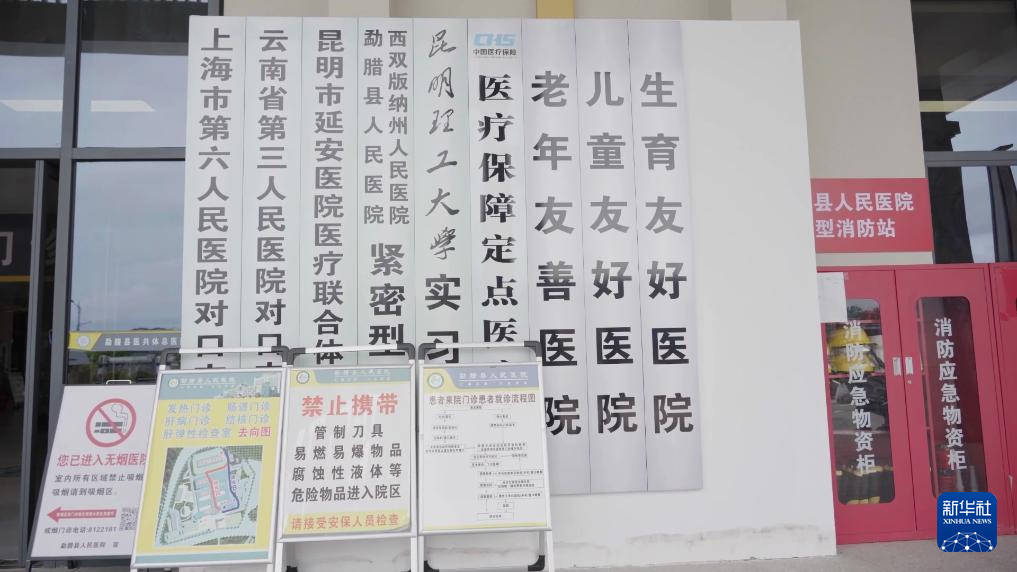 上海市第六人民医院对口
云南省第三人民医院对口
昆明市延安医院医疗联合体
西双版纳州人民医院
勐腊县人民医院
紧密型
昆明理工大学
实习
CHS
中国医疗保障
医疗保障定点医
老年友善医院
儿童友好医院
生育友好医院
县人民医院
型消防站
消防应急物资柜
消防应急物资柜
勐腊县医共体总医
您已进入无烟医院
室内所有区域禁止吸烟
吸烟请到吸烟区。
戒烟门诊电话:8122181
勐腊县人民医院 宣
勐腊县人民医院
发热门诊 肠道门诊
肝病门诊 结核门诊
肝弹性检查室 去向图
勐腊县人民医院
禁止携带
管制刀具
易燃易爆物品
腐蚀性液体等
危险物品进入院区
请接受安保人员检查
勐腊县人民医院
患者来院门诊患者就诊流程图
新华社
XINHUA NEWS